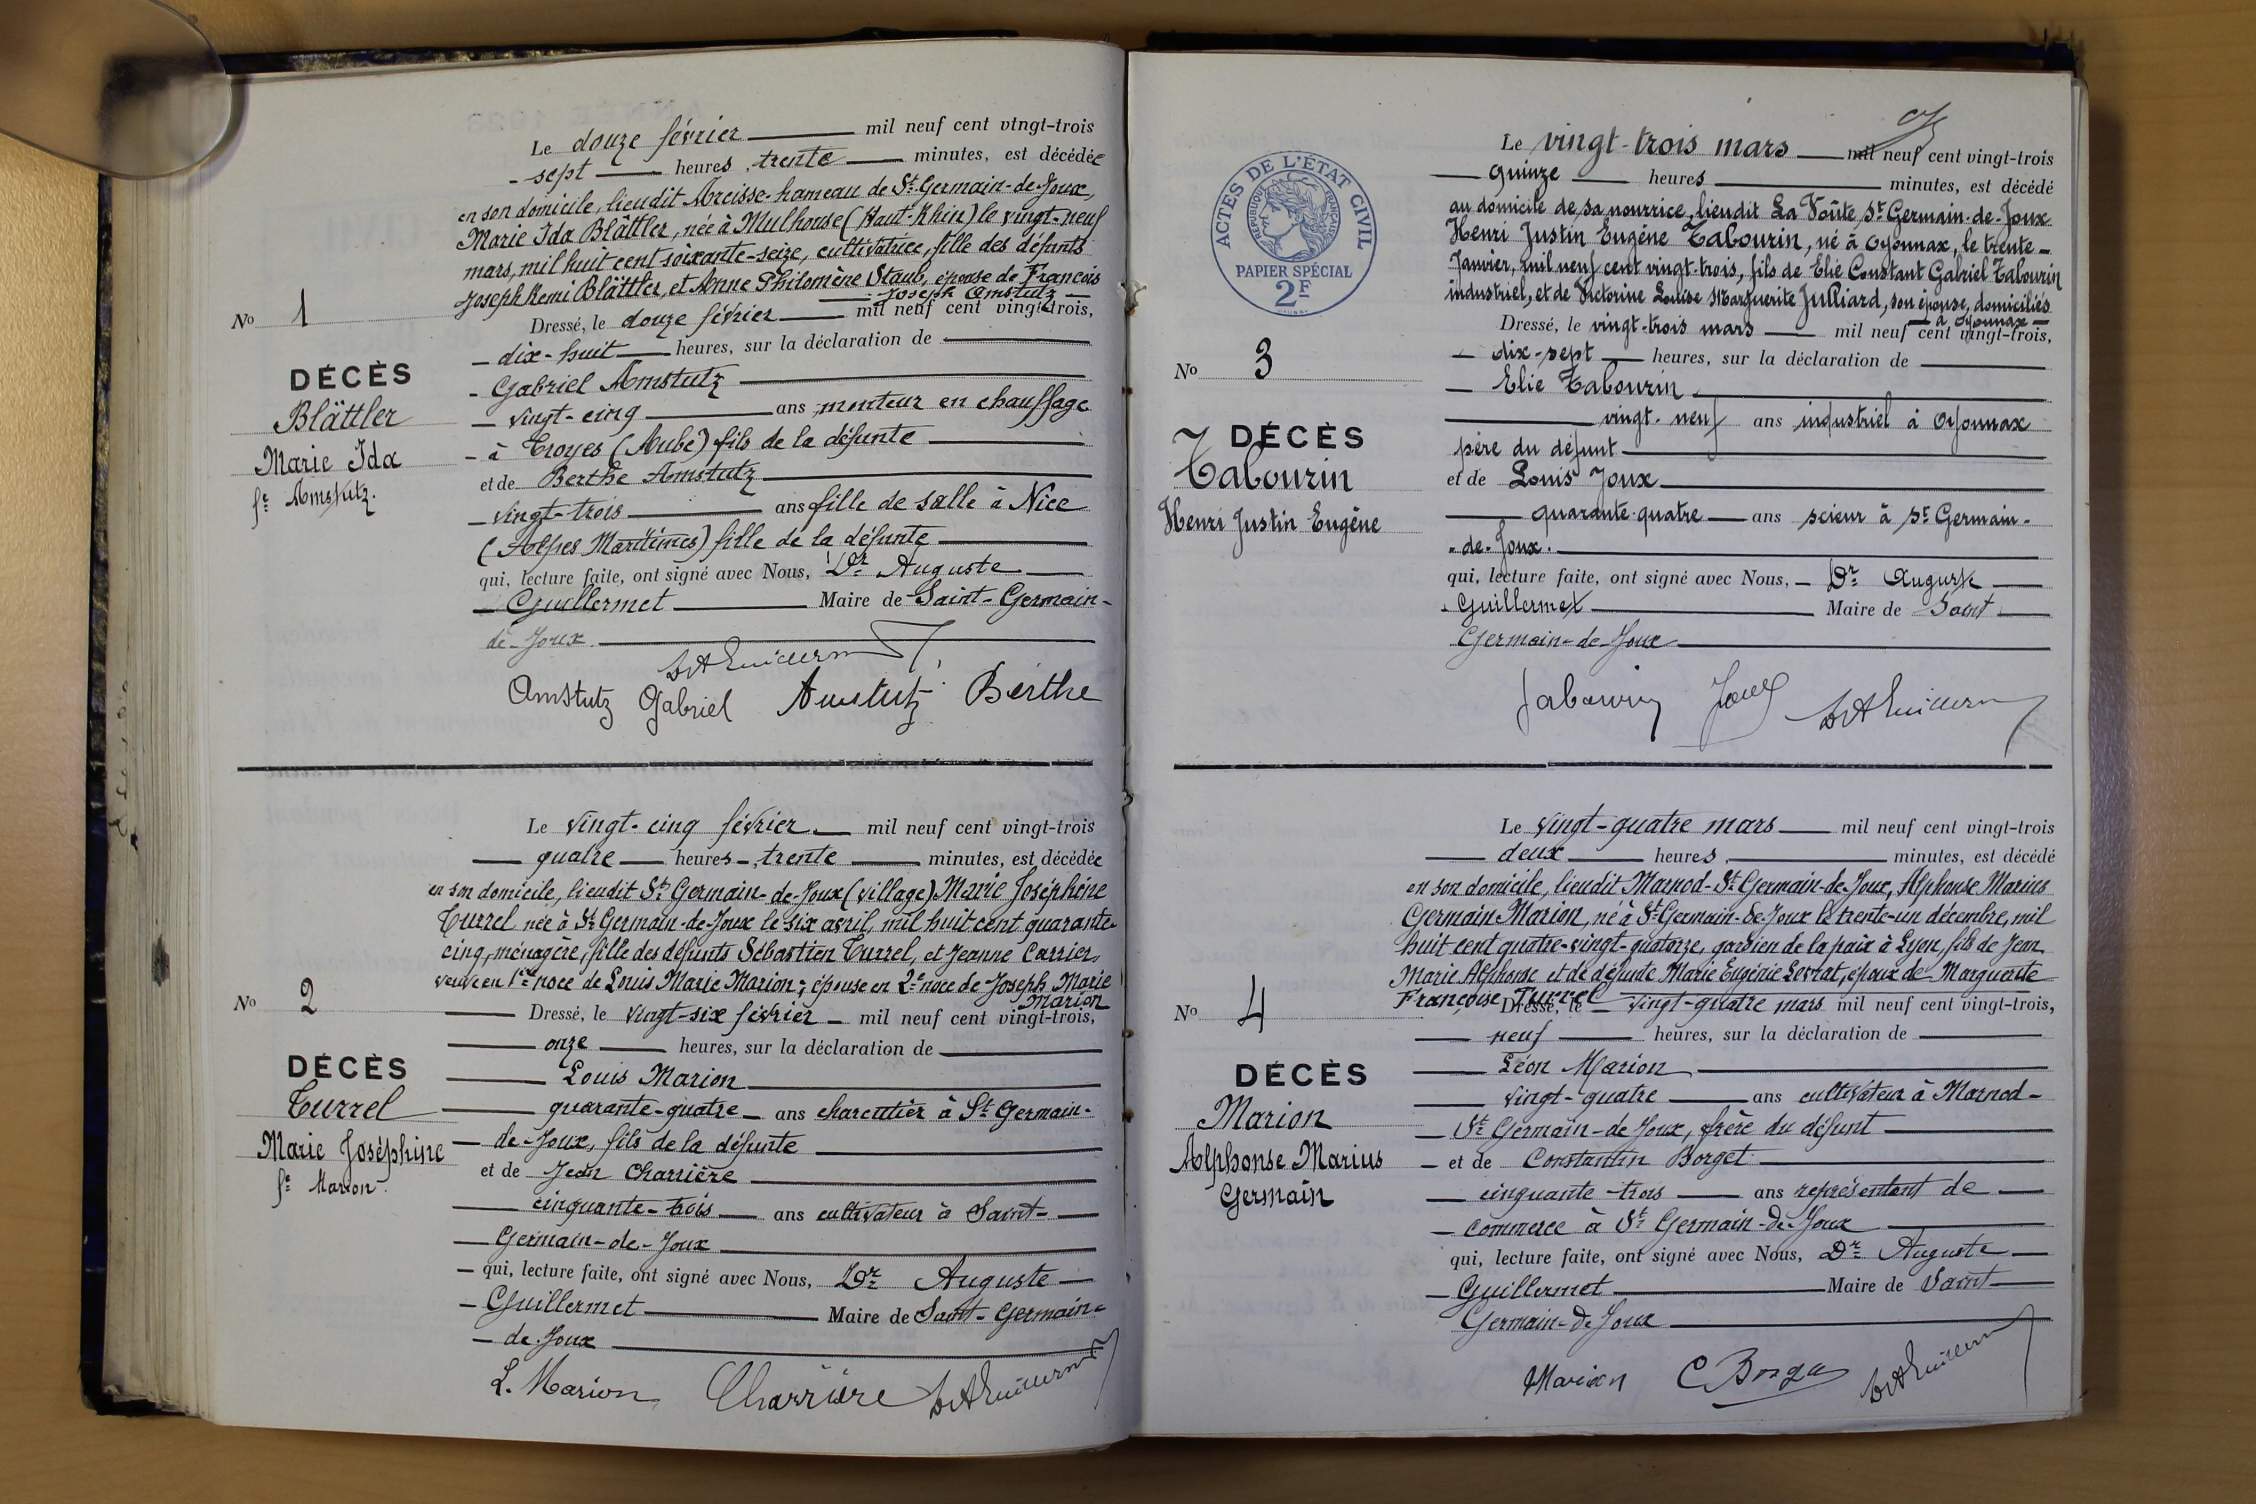 Le douze février mil neuf cent vingt-trois
sept heures, trente minutes, est décédée
en son domicile, lieudit hameau de St Germain-de-Joux,
Marie Ida Blättler, née à Mulhouse (Haut-Rhin) le vingt-neuf
mars, mil huit cent soixante-seize, cultivatrice, fille des défunts
Joseph Remi Blättler, et Anne Philomène Staub, épouse de François
Joseph Amstutz
No 1
Dressé, le douze février mil neuf cent vingt-trois,
dix-huit heures, sur la déclaration de
DÉCÈS
Blättler
Marie Ida
fe Amstutz.
Gabriel Amstutz
vingt-cinq ans, monteur en chauffage
à Troyes (Aube) fils de la défunte
et de Berthe Amstutz
vingt-trois ans fille de salle à Nice
(Alpes Maritimes) fille de la défunte
qui, lecture faite, ont signé avec Nous, Dr Auguste
Guillermet Maire de Saint-Germain-
de-Joux
Dr A Guillermet
Amstutz Gabriel Amstutz Berthe
Le vingt-cinq février mil neuf cent vingt-trois
quatre heures, trente minutes, est décédée
en son domicile, lieudit St Germain-de-Joux (village) Marie Joséphine
Turrel née à St Germain-de-Joux le six avril, mil huit cent quarante-
cinq, ménagère, fille des défunts Sébastien Turrel, et Jeanne Carrier,
veuve en 1re noce de Louis Marie Marion; épouse en 2e noce de Joseph Marie
Marion
No 2
Dressé, le vingt-six février mil neuf cent vingt-trois,
onze heures, sur la déclaration de
DÉCÈS
Turrel
Marie Joséphine
fe Marion.
Louis Marion
quarante-quatre ans charcutier à St Germain-
de-Joux, fils de la défunte
et de Jean Charrière
cinquante-trois ans cultivateur à Saint-
Germain-de-Joux
qui, lecture faite, ont signé avec Nous, Dr Auguste
Guillermet Maire de Saint-Germain-
de-Joux
L. Marion Charrière Dr A Guillermet
Le vingt-trois mars mil neuf cent vingt-trois
quinze heures minutes, est décédé
au domicile de sa nourrice, lieudit La Voûte, St Germain-de-Joux
Henri Justin Eugène Tabourin, né à Oyonnax, le trente-
Janvier, mil neuf cent vingt-trois, fils de Elie Constant Gabriel Tabourin
industriel, et de Victorine Louise Marguerite Julliard, son épouse, domiciliés
à Oyonnax
ACTES DE L'ÉTAT CIVIL
RÉPUBLIQUE FRANÇAISE
PAPIER SPÉCIAL
2F
No 3
Dressé, le vingt-trois mars mil neuf cent vingt-trois,
dix-sept heures, sur la déclaration de
DÉCÈS
Tabourin
Henri Justin Eugène
Elie Tabourin
vingt-neuf ans industriel à Oyonnax
père du défunt
et de Louis Joux
quarante-quatre ans scieur à St Germain-
de-Joux.
qui, lecture faite, ont signé avec Nous, Dr Auguste
Guillermet Maire de Saint
Germain-de-Joux
Tabourin Joux Dr A Guillermet
Le vingt-quatre mars mil neuf cent vingt-trois
deux heures, minutes, est décédé
en son domicile, lieudit Marnod-St Germain-de-Joux, Alphonse Marius
Germain Marion, né à St Germain-de-Joux le trente-un décembre, mil
huit cent quatre-vingt-quatorze, gardien de la paix à Lyon, fils de Jean
Marie Alphonse et de défunte Marie Eugénie Levrat, époux de Marguerite
Françoise Turrel
No 4
Dressé, le vingt-quatre mars mil neuf cent vingt-trois,
neuf heures, sur la déclaration de
DÉCÈS
Marion
Alphonse Marius
Germain
Léon Marion
vingt-quatre ans cultivateur à Marnod-
St Germain-de Joux, frère du défunt
et de Constantin Borget
cinquante-trois ans représentant de
commerce à St Germain-de-Joux
qui, lecture faite, ont signé avec Nous, Dr Auguste
Guillermet Maire de Saint
Germain-de Joux
Marion C Borget Dr A Guillermet